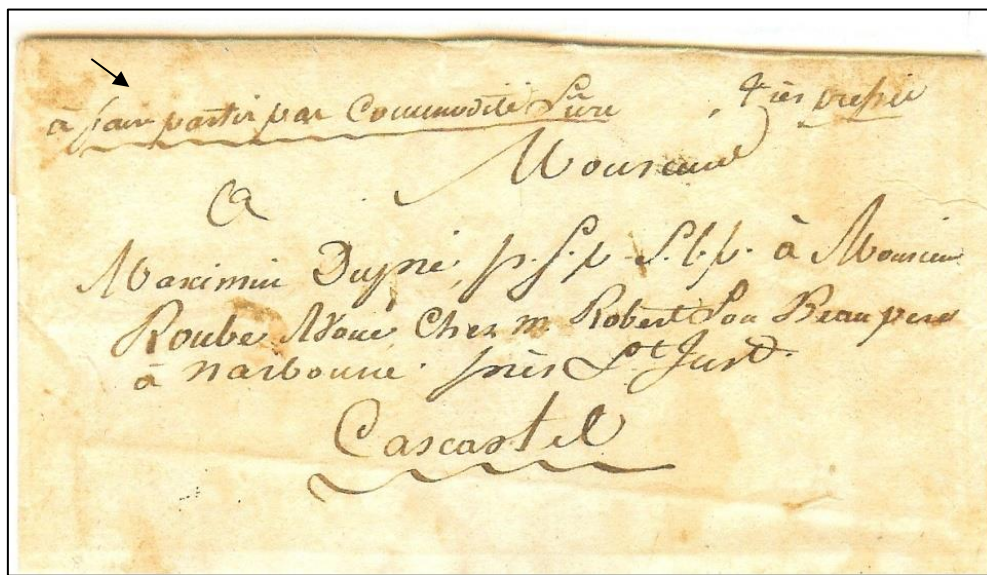 à faire partir par Commodité Sure, très pressée
Monsieur
A
Maximin Dupré, p. s. p. S. l. p. à Monsieur
Roube Chez m Robert Son Beau pere
à Narbonne près St Just.
Cascastel